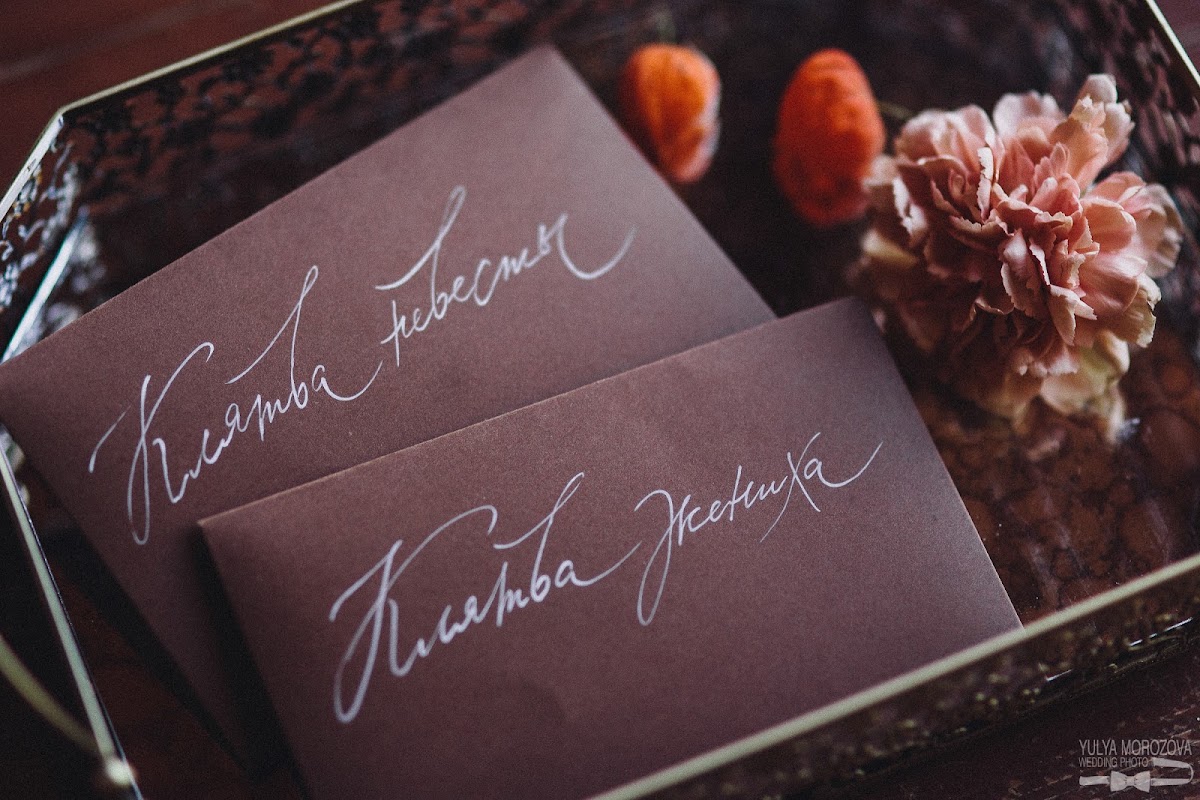 Клятва невесты
Клятва жениха
YULYA MOROZOVA
WEDDING PHOTO